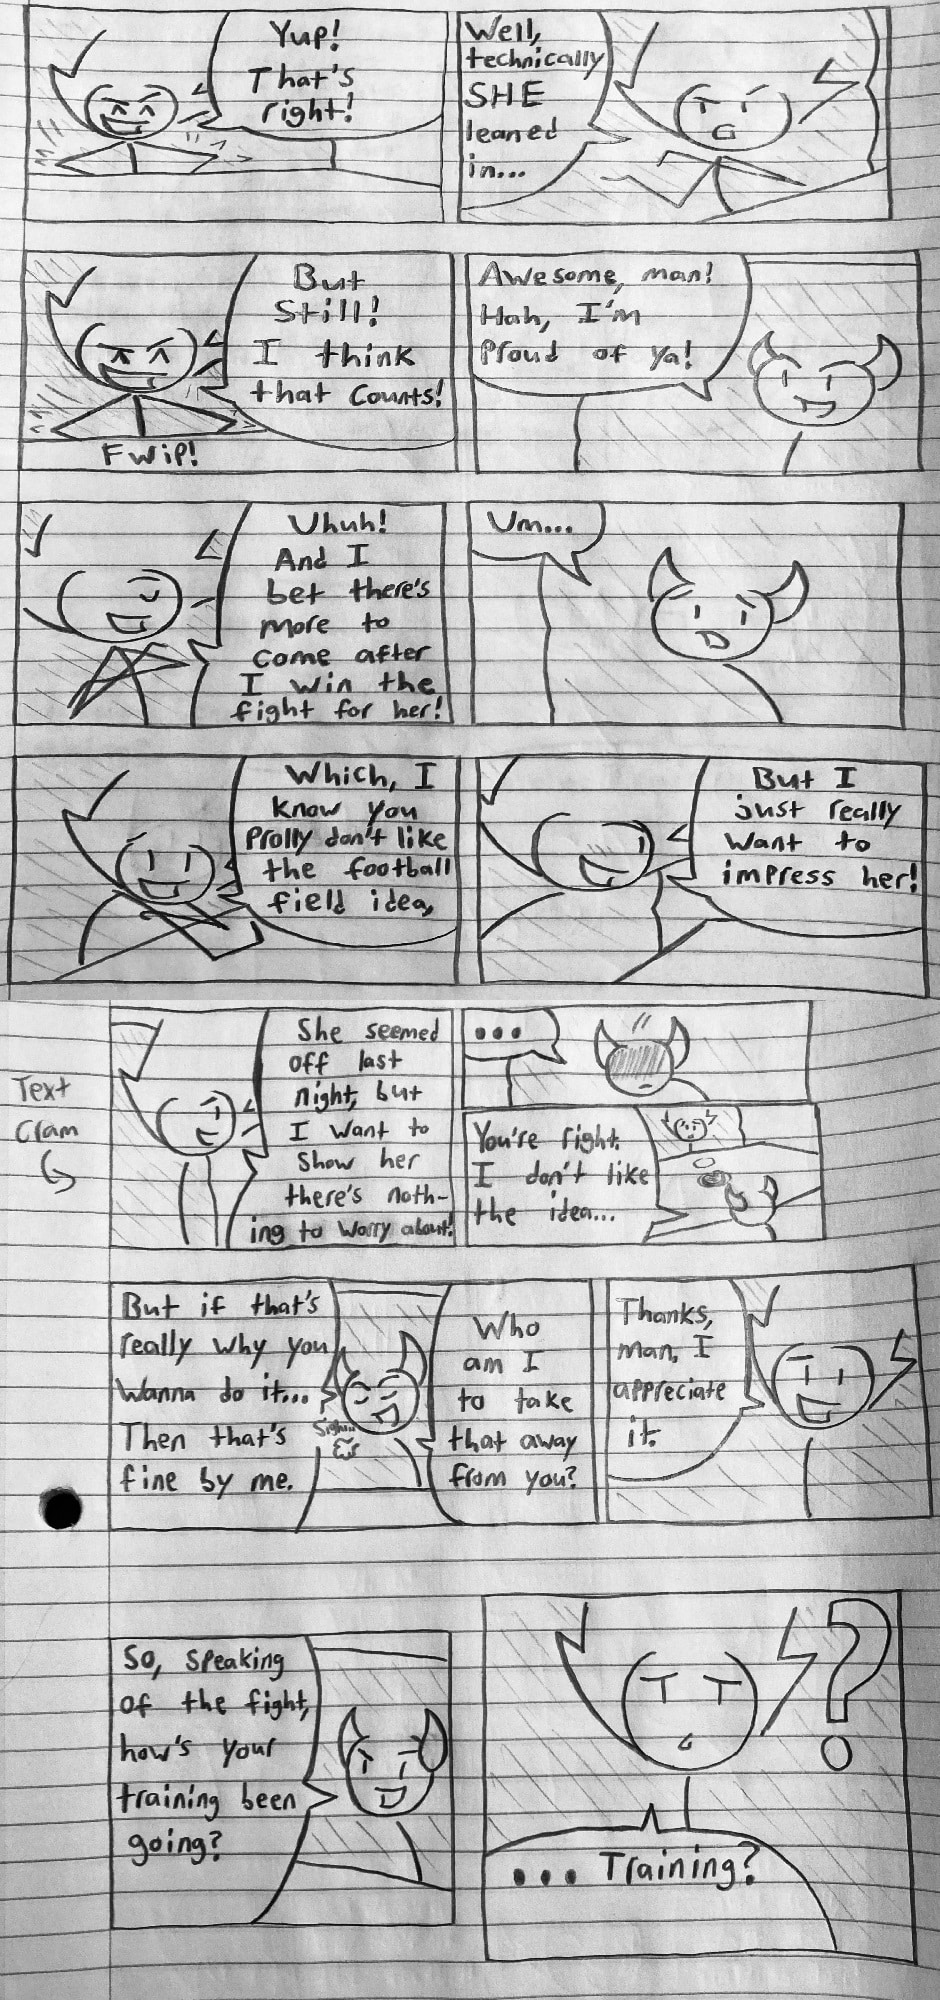 Yup!
That's
right!
Well,
technically
SHE
leaned
in...
But
Still!
I think
that counts!
FWIP!
Awesome, man!
Hah, I'm
Proud of ya!
Uhuh!
And I
bet there's
more to
come after
I win the
fight for her!
Um...
Which, I
know you
Prolly don't like
the football
field idea,
But I
just really
want to
impress her!
Text
Cram
She seemed
off last
night, but
I want to
show her
there's noth-
ing to worry about!
...
You're right.
I don't like
the idea...
But if that's
really why you
wanna do it...
Then that's
fine by me.
Sigh...
Who
am I
to take
that away
from you?
Thanks,
man, I
appreciate
it.
So, speaking
of the fight,
how's your
training been
going?
?
... Training?